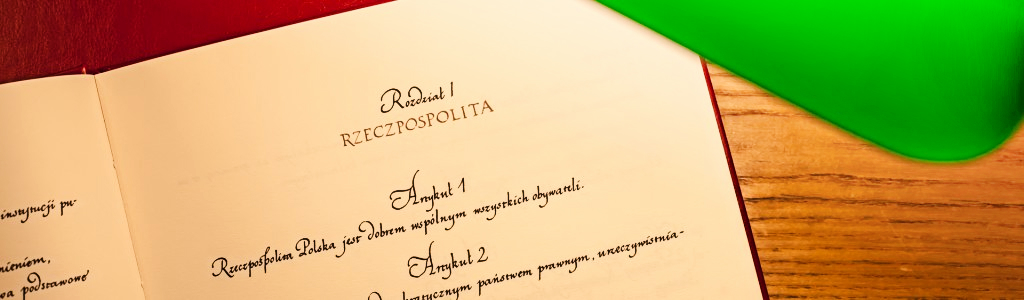 instytucji pu-
mieniem,
podstawowe
Rozdział I
RZECZPOSPOLITA
Artykuł 1
Rzeczpospolita Polska jest dobrem wspólnym wszystkich obywateli.
Artykuł 2
państwem prawnym, urzeczywistnia-